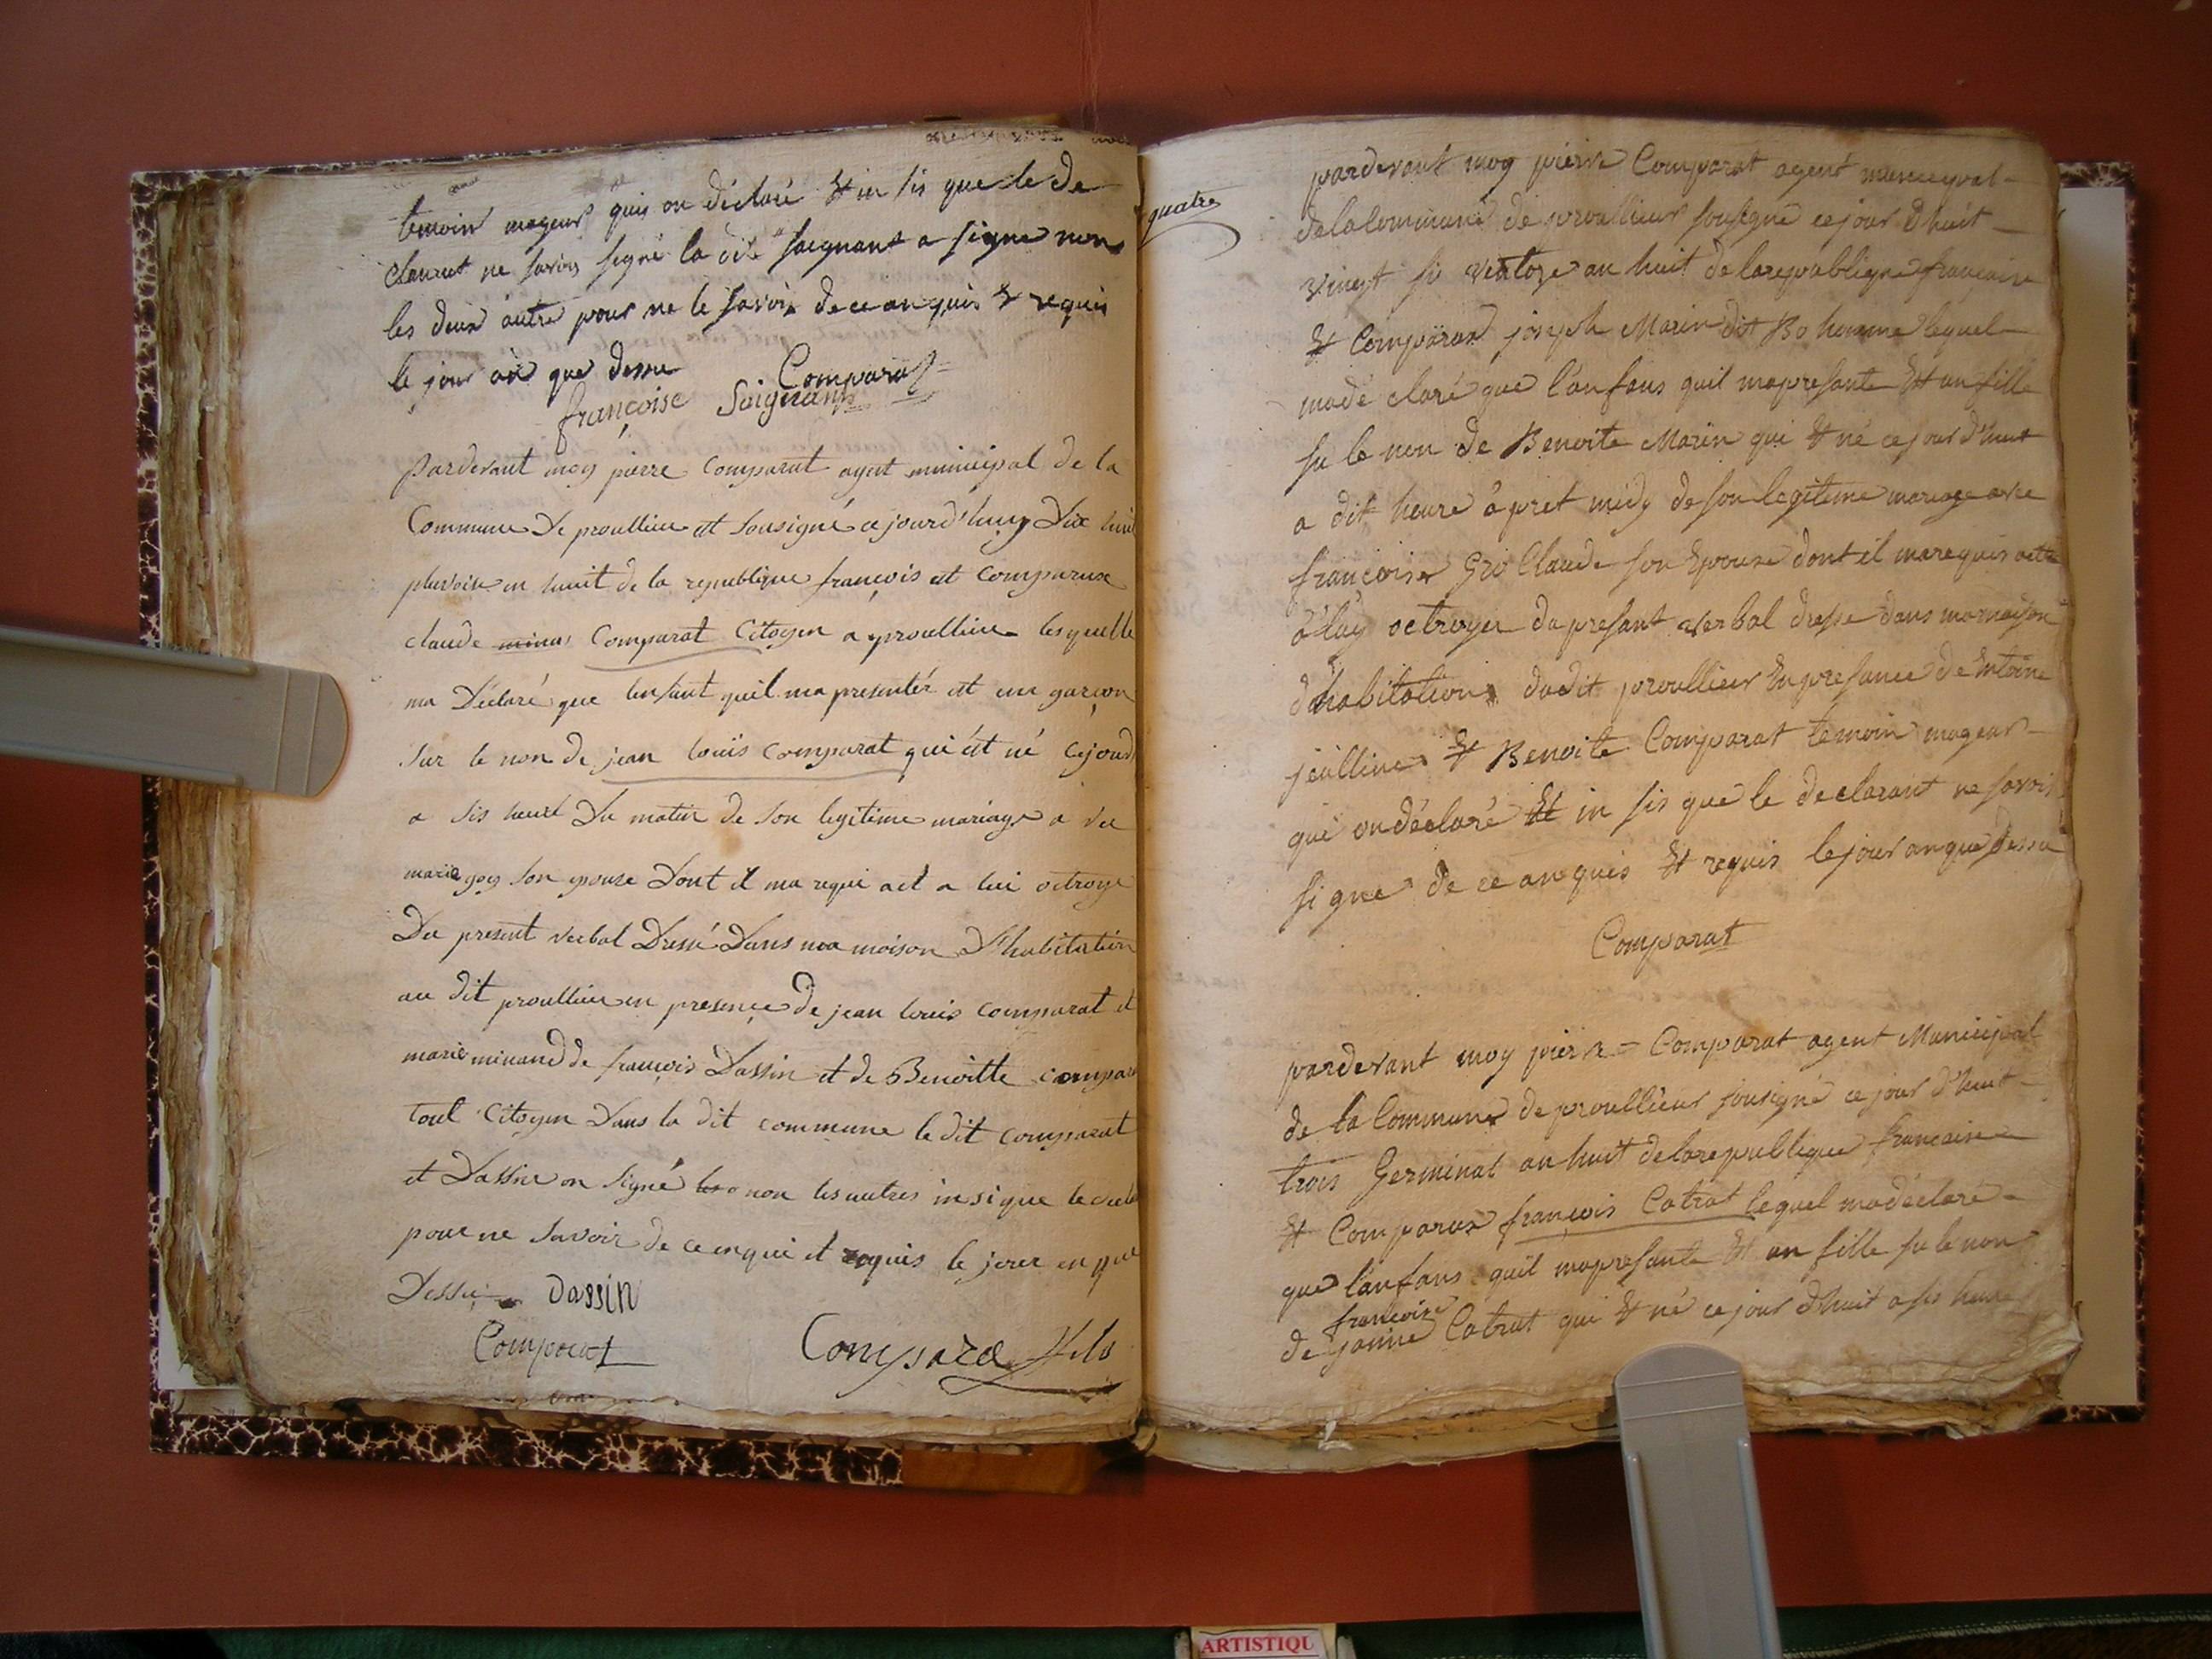 temoin mageur quis on déclaré & in sis que le de
clarent ne savois signé la dit saignant a signe non
les deux autre pour ne le savoir de ce anquis & requis
le jour an que dessu
Comparat
françoise Saignant
pardevant moy pierre comparat agent municipal de la
Commune De proullieu et sousigné cejourd'huy Dix huit
pluvoise en huit de la republique françois et comparux
claude Comparat Citoyen a proullieu lesquelle
ma Déclaré que lenfant quil ma presentér et un garçon
sur le non de jean louis comparat qui ét né cejourd
a sis heure Du matin de son legitime mariage a vec
marie goy son epouse Dont il ma requi act a lui octroye
Du present verbal Dressé Dans ma maison D'habitation
au dit proullieu en presence De jean louis comparat et
marie minand de françois Dassin et de Benoitte compara
tout Citoyen Dans la dit commune le dit comparat
et Dassin on signé non les autres insi que le
pour ne savoir de ce enqui et requis le jour en que
Dessu Dassin
Comparat Comparat
quatre
pardevant moy pierre Comparat agent
de la Commune de proullieur sousigné ce jour d'huit
vingt si ventose an huit de la republique francaise
& Comparux joseph Marin dit Bo homme lequel
madé claré que l'anfans quil mapresante & un fille
su le non de Benoite Marin qui & né ce jour d'huit
a dit heure apret midy de son legitime mariage avec
françoise Gro Claude son Epouse dont il marequis acte
a luy octroyer du presant verbal dresse dans ma maison
d'habitation dudit proullieur En presance de Entoine
jeulline & Benoite Comparat temoin mageur
qui on déclaré & in sis que le declarant ne savoir
signe de ce anquis & requis le jour an que dessu
Comparat
pardevant moy pierre Comparat agent Municipal
de la Commune de proullieur sousigné ce jour d'huit
trois Germinal an huit de la republique francaise
& Comparux françois Catrat lequel madéclaré
que l'anfans quil mapresante & un fille su le non
françoise
de janne Catrat qui & né ce jour d'huit a sis heure
ARTISTIQU